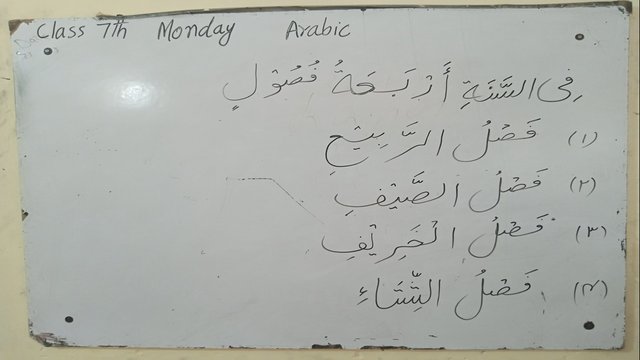 Class 7th Monday Arabic
فِى السَّنَةِ أَرْبَعَةُ فُصُوْلٍ
(١) فَصْلُ الرَّبِيْعِ
(٢) فَصْلُ الصَّيْفِ
(٣) فَصْلُ الْخَرِيْفِ
(۴) فَصْلُ الشِّتَاءِ